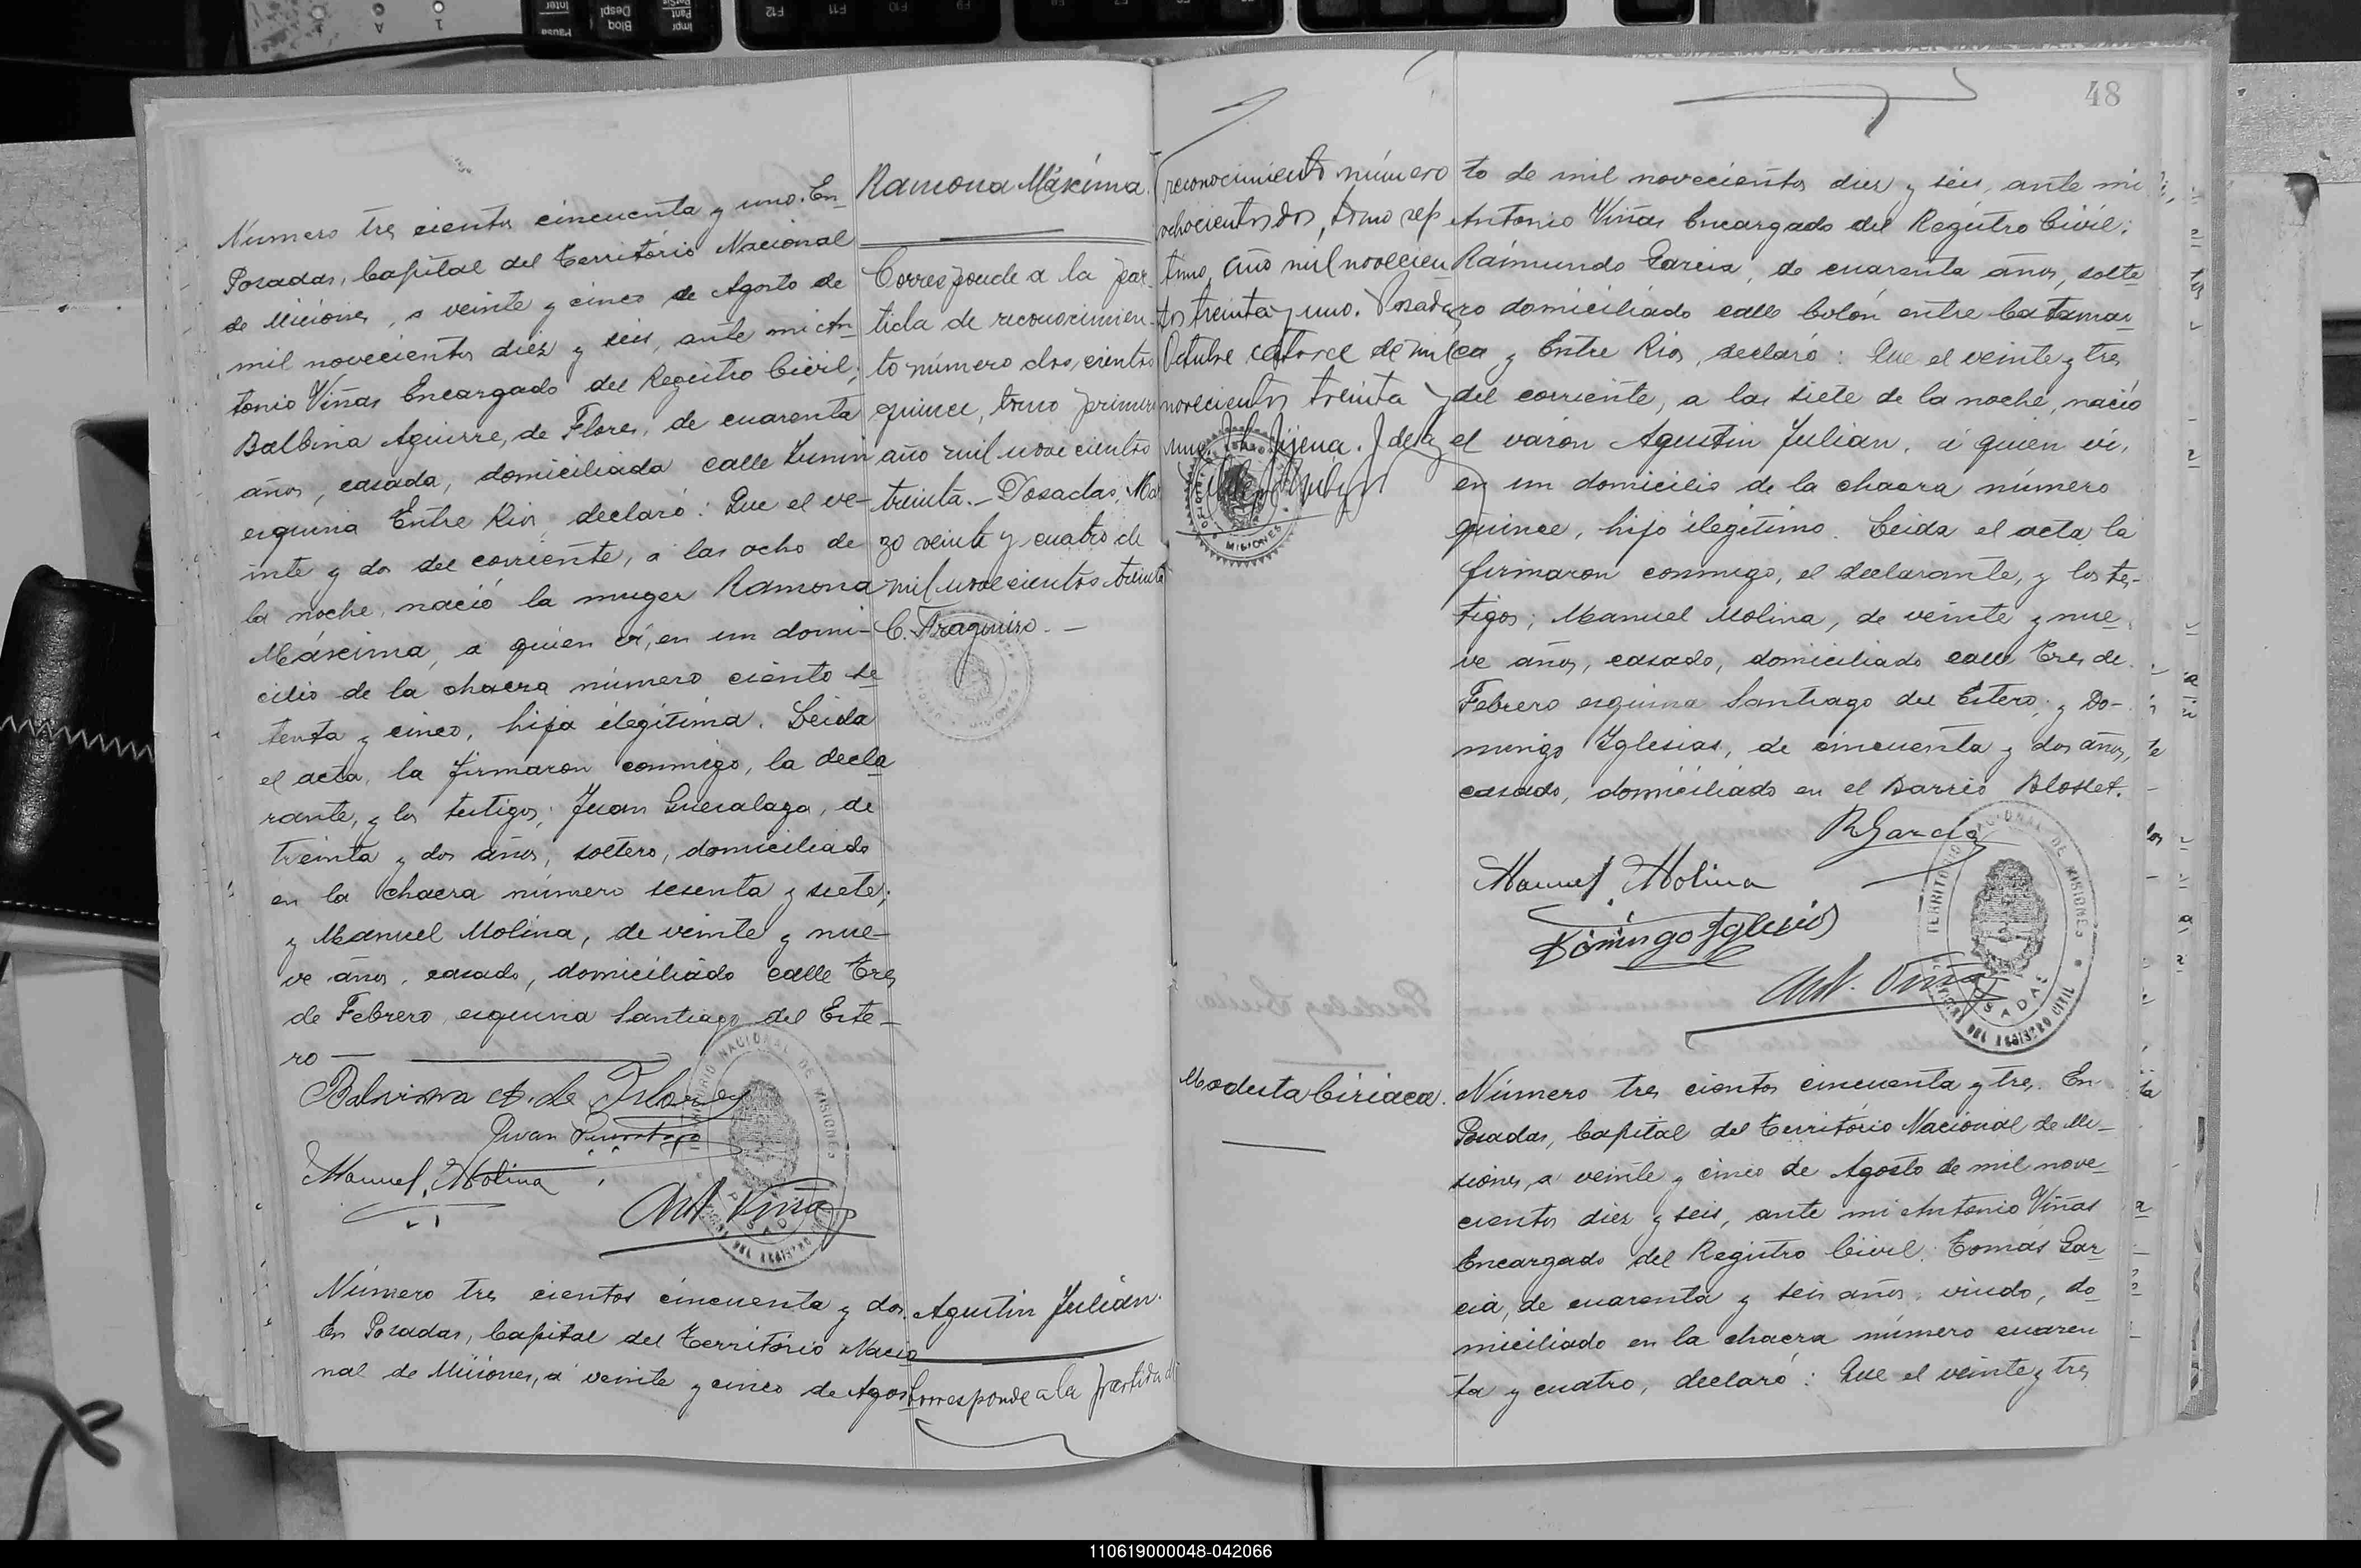 Número tres cientos cincuenta y uno. En
Posadas, Capital del Territorio Nacional
de Misiones, a veinte y cinco de Agosto de
mil novecientos diez y seis, ante mi An-
tonio Viñas Encargado del Registro Civil;
Balbina Aguirre, de Flores, de cuarenta
años, casada, domiciliada calle Junin
esquina Entre Rios, declaró: Que el ve-
inte y dos del corriente, a las ocho de
la noche, nació la muger Ramona
Máxima, a quien vi, en un domi-
cilio de la chacra número ciento se
tenta y cinco, hija ilegítima. Leida
el acta, la firmaron conmigo, la decla
rante, y los testigos; Juan, de
treinta y dos años, soltero, domiciliado
en la chacra número sesenta y siete;
y Manuel Molina, de veinte y nue-
ve años, casado, domiciliado calle Tres
de Febrero, esquina Santiago del Este-
ro —
Balvina A. de Flores
Juan
Manuel Molina
Ant. Viñas
Número tres cientos cincuenta y dos.
En Posadas, Capital del Territorio Nacio
nal de Misiones, a veinte y cinco de Agos
Ramona Máxima.
Corresponde a la par-
tida de reconocimien-
to número dos cientos
quince, tomo primero
año mil novecientos
treinta. — Posadas, Mar
zo veinte y cuatro de
mil novecientos treinta
Agustin Julián.
Corresponde a la partida de
48
reconocimiento número
ochocientos dos, tomo sép
timo, año mil novecien
tos treinta y uno. Posadas
Octubre catorce de mil
novecientos treinta y
uno.
MISIONES
to de mil novecientos diez y seis, ante mi
Antonio Viñas Encargado del Registro Civil;
Raimundo Garcia, de cuarenta años, solte
ro domiciliado calle Colón entre Catamar
ca y Entre Rios, declaró: Que el veinte y tres
del corriente, a las siete de la noche, nació
el varon Agustin Julian, á quien vi,
en un domicilio de la chacra número
quince, hijo ilegítimo. Leida el acta la
firmaron conmigo, el declarante, y los te-
tigos; Manuel Molina, de veinte y nue
ve años, casado, domiciliado calle Tres de
Febrero esquina Santiago del Estero; y Do-
mingo Iglesias, de cincuenta y dos años,
casado, domiciliado en el Barrio Blosset.
R Garcia
Manuel Molina
Domingo Iglesias
Ant. Viñas
TERRITORIO NACIONAL DE MISIONES
POSADAS
OFICINA DEL REGISTRO CIVIL
Modesta Ciriaca.
Número tres cientos cincuenta y tres. En
Posadas, Capital del Territorio Nacional de Mi-
siones, a veinte y cinco de Agosto de mil nove-
cientos diez y seis, ante mi Antonio Viñas
Encargado del Registro Civil: Tomás Gar
cia, de cuarenta y seis años, viudo, do
miciliado en la chacra número cuaren
ta y cuatro, declaró: Que el veinte y tres
110619000048-042066